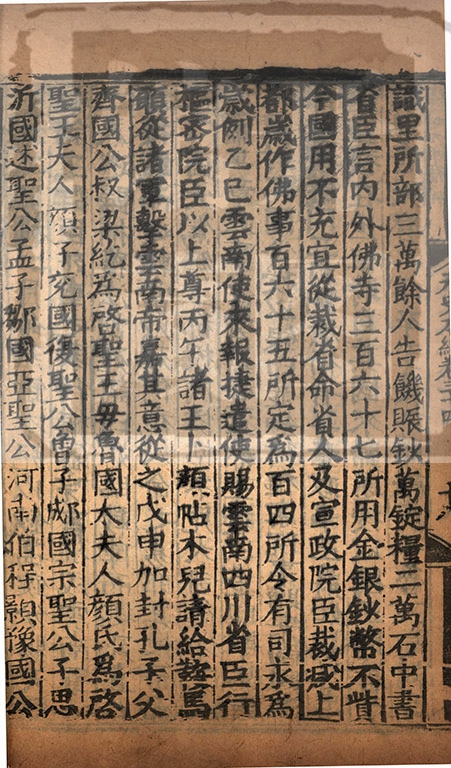 識里所部三萬餘人告饑賑鈔萬錠糧二萬石中書
省臣言内外佛寺三百六十七所用金銀鈔幣不貲
今國用不充宜從裁省命省人及宣政院臣裁減上
都歲作佛事百六十五所定為百四所令有司永為
歲例乙巳雲南使來報捷遣使賜雲南四川省臣行
樞密院臣以上尊丙午諸王卜顏帖木兒請給鞍馬
願從諸軍擊雲南帝嘉其意從之戊申加封孔子父
齊國公叔梁紇為啓聖王母魯國太夫人顏氏為啓
聖王夫人顏子兗國復聖公曾子郕國宗聖公子思
沂國述聖公孟子鄒國亞聖公河南伯程顥豫國公